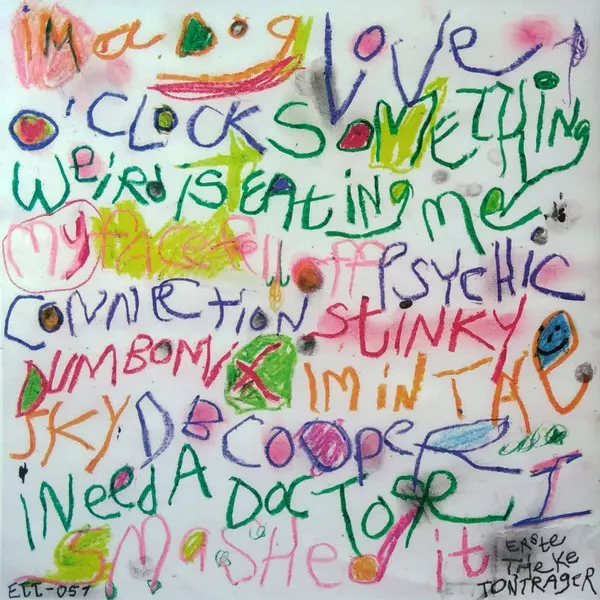 iM a DOg LOVe
O'CLOCK SOMETHING
WeiRD iS EAting me
my face fell off PSYCHIC
CONNECTION STINKY
DUMBOMiX IM iN THE
SKY DB COOPER
iNeed A DOCTOR I
SMaSHeD it
ERste
THeKe
TONTRAGER
ETT-057